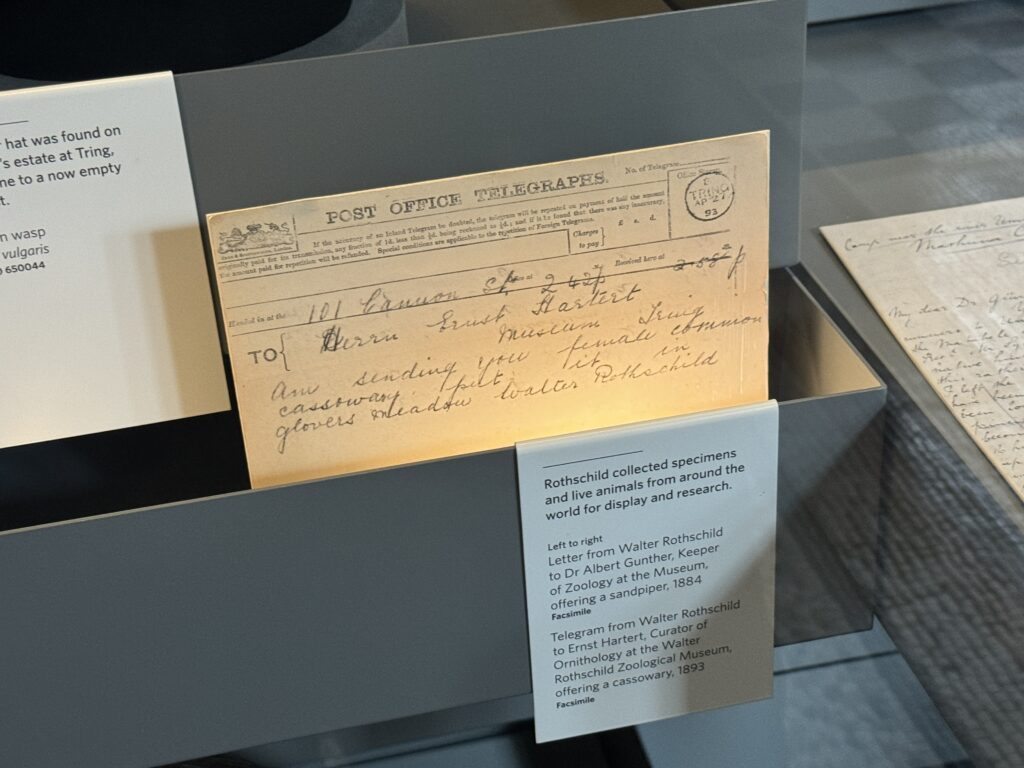 hat was found on
's estate at Tring,
ne to a now empty
t.
n wasp
vulgaris
650044
POST OFFICE TELEGRAPHS.
No. of Telegram
If the accuracy of an Inland Telegram be doubted, the telegram will be repeated on payment of half the amount
originally paid for its transmission, any fraction of ½d. less than ½d. being reckoned as ½d.; and if it be found that there was any inaccuracy,
the amount paid for repetition will be refunded. Special conditions are applicable to the repetition of Foreign Telegrams.
Charges
to pay
£ s. d.
TRING
AP 27
93
Handed in at the
101 Cannon St
at
2 42p
Received here at
2.58 p
TO
Herrn Ernst Hartert
Museum Tring
Am sending you female common
cassowary put it in
glovers meadow Walter Rothschild
Rothschild collected specimens
and live animals from around the
world for display and research.
Left to right
Letter from Walter Rothschild
to Dr Albert Gunther, Keeper
of Zoology at the Museum,
offering a sandpiper, 1884
Facsimile
Telegram from Walter Rothschild
to Ernst Hartert, Curator of
Ornithology at the Walter
Rothschild Zoological Museum,
offering a cassowary, 1893
Facsimile
My dear Dr